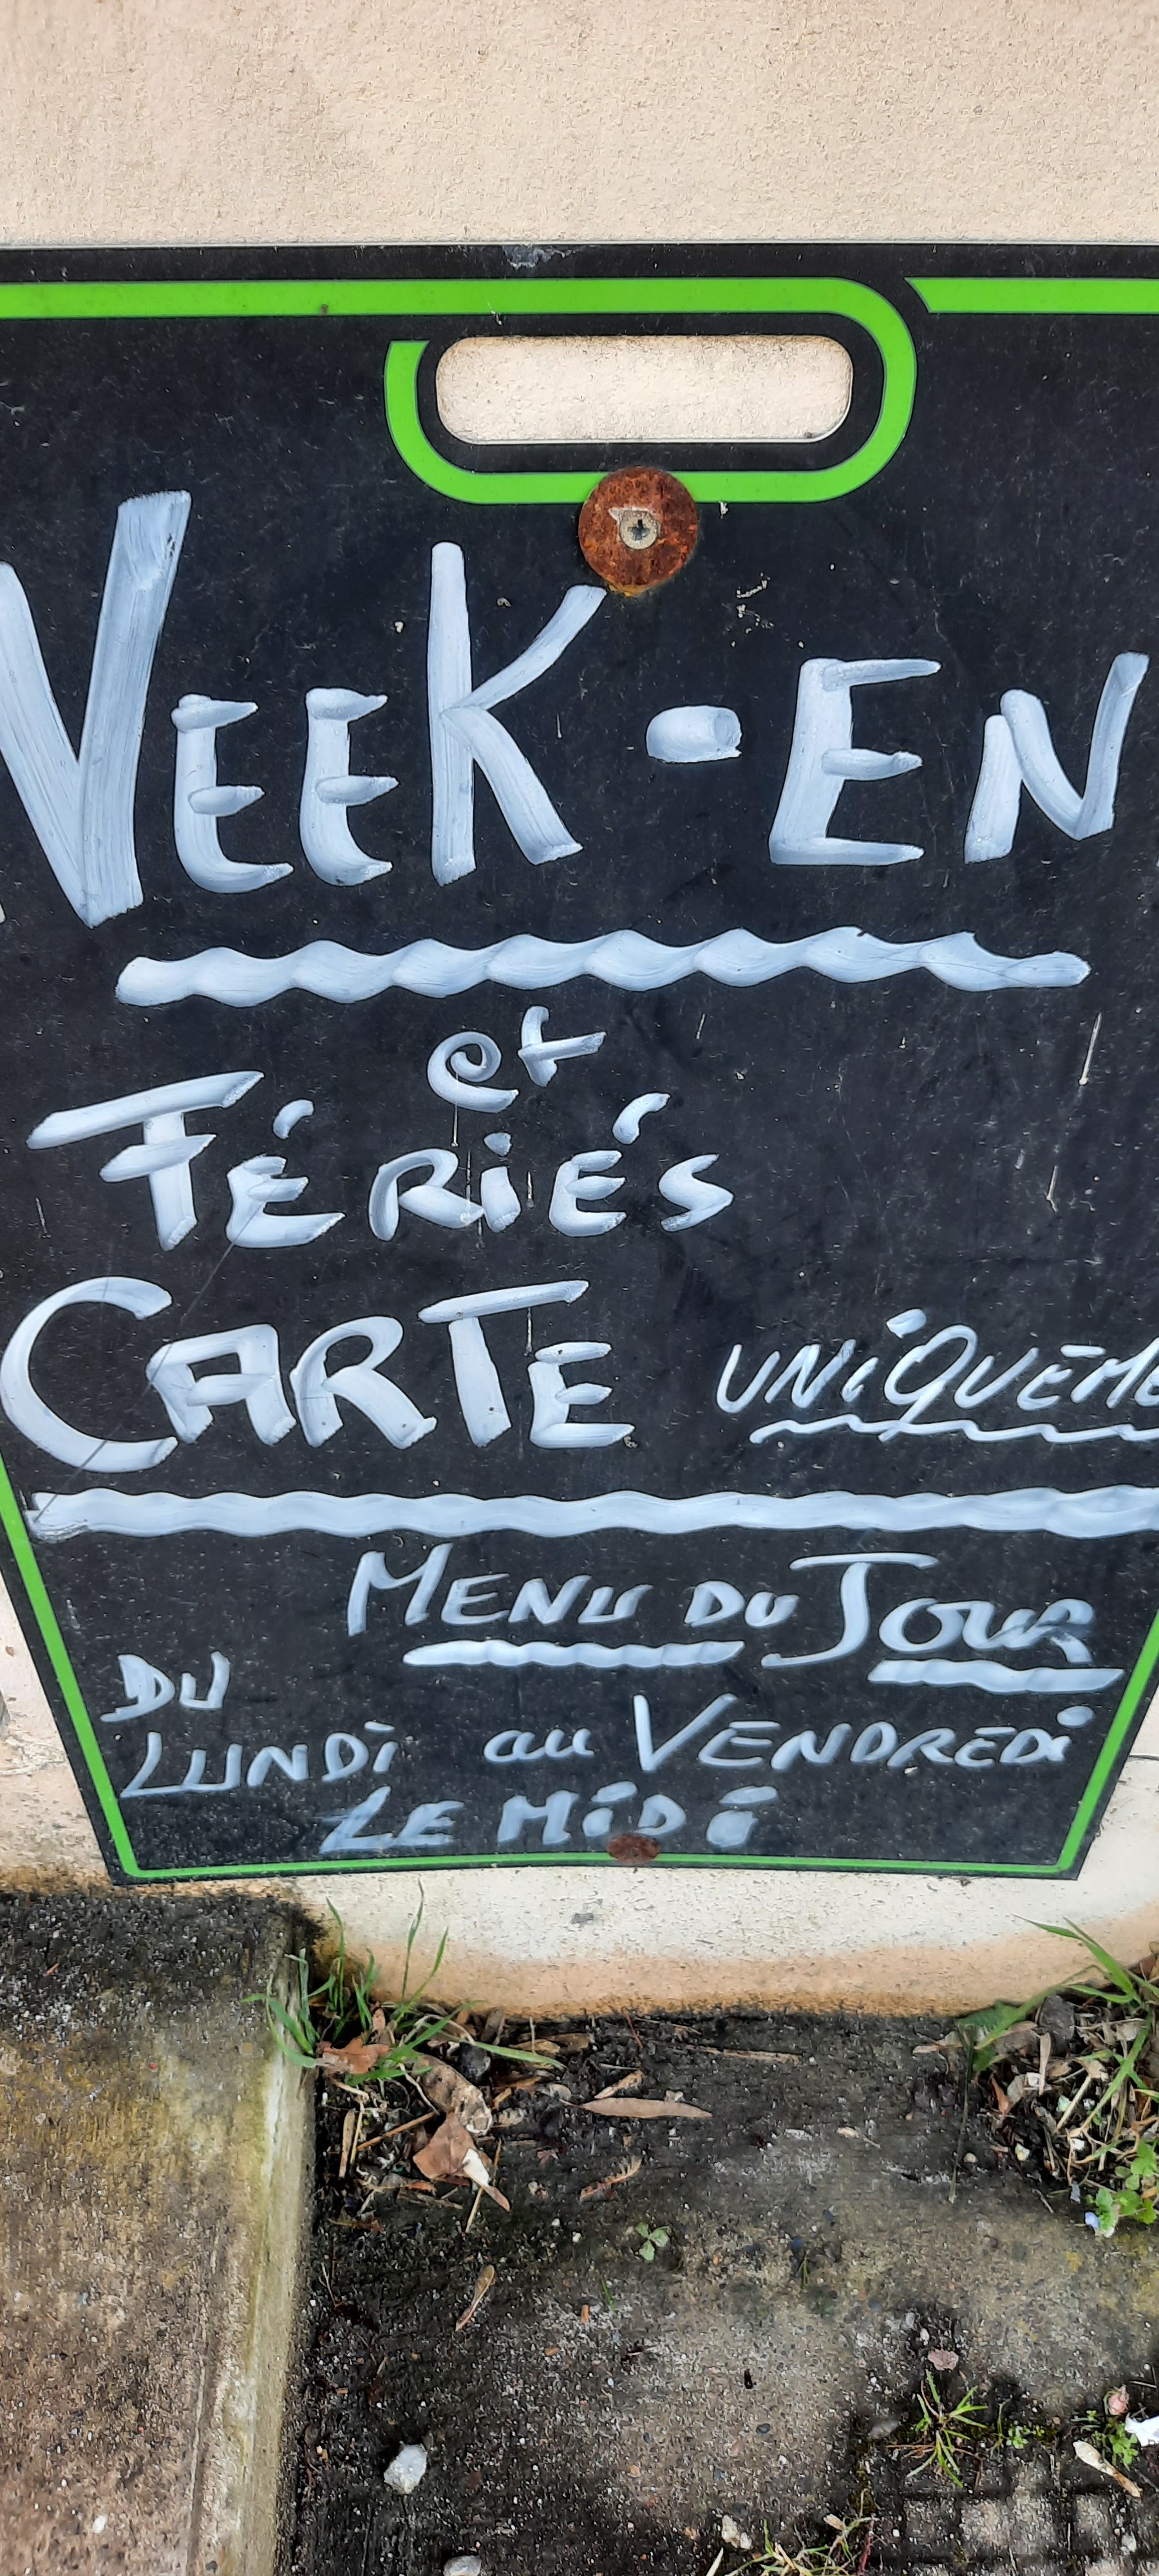 WEEK-EN
et
FÉRIÉS
CARTE UNIQUEME
MENU DU JOUR
DU
LUNDI au VENDREDI
LE MIDI